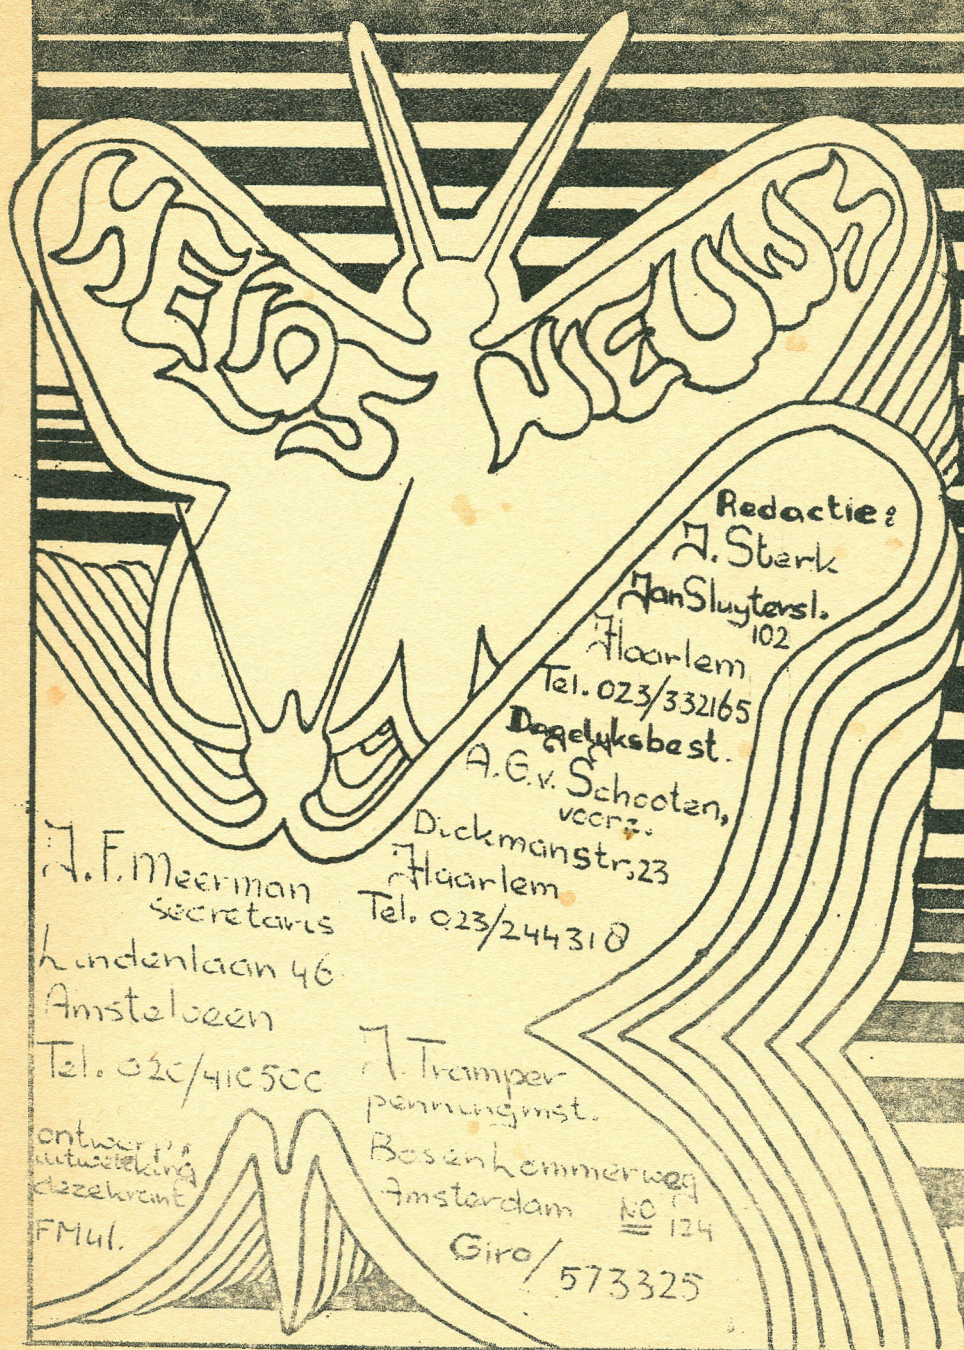 HELIOS NIEUWS
Redactie:
J. Sterk
Jan Sluytersl.
102
Haarlem
Tel. 023/332165
Dagelyksbest.
A.G.v. Schooten,
voorz.
Dickmanstr. 23
Haarlem
Tel. 023/244318
J.F. Meerman
secretaris
Lindenlaan 46
Amstelveen
Tel. 020/410500
J. Tramper
penningmst.
Bosenhommerweg
Amsterdam NO 124
Giro/573325
ontwerp,
uitwerking
dezekrant
FM41.